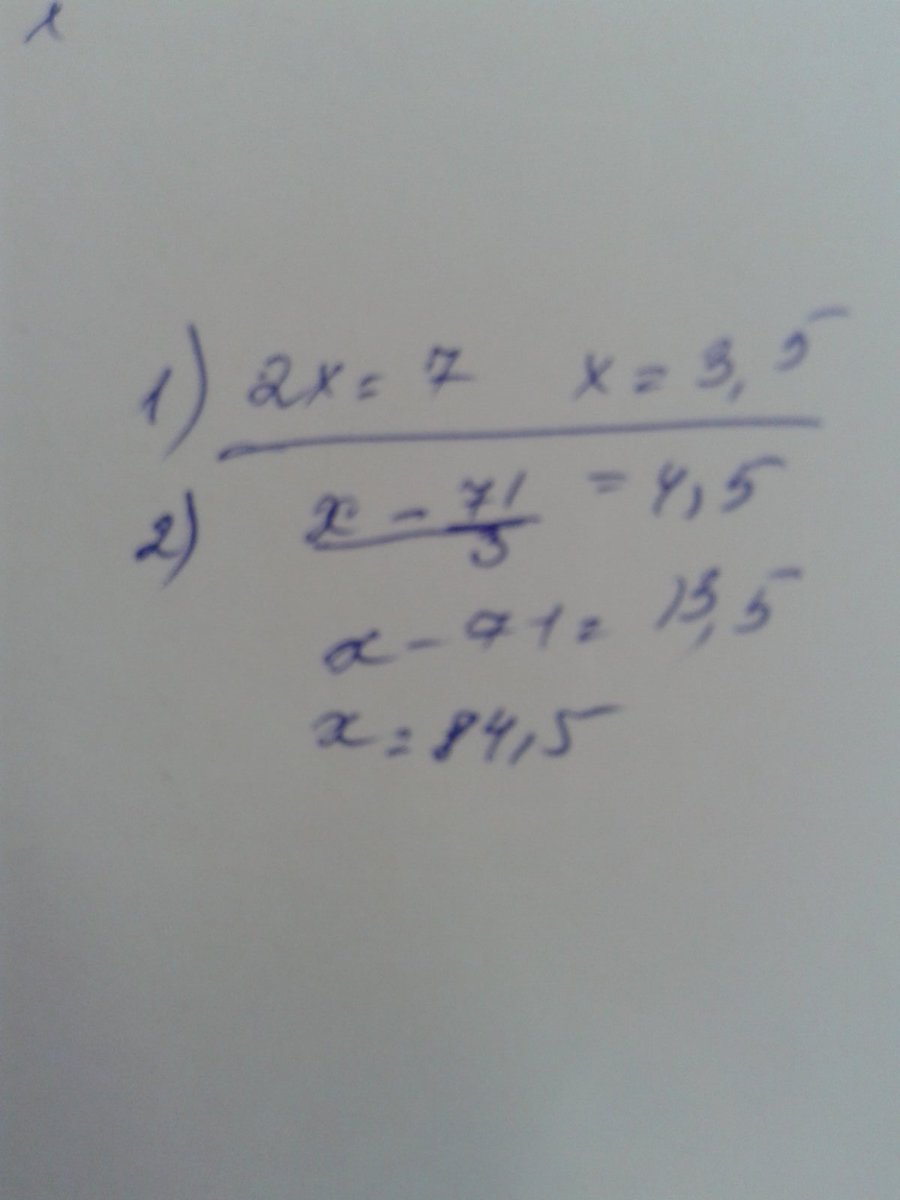 1) 2x = 7 x = 3,5
2) x - 71 = 4,5
3
x - 71 = 13,5
x = 84,5